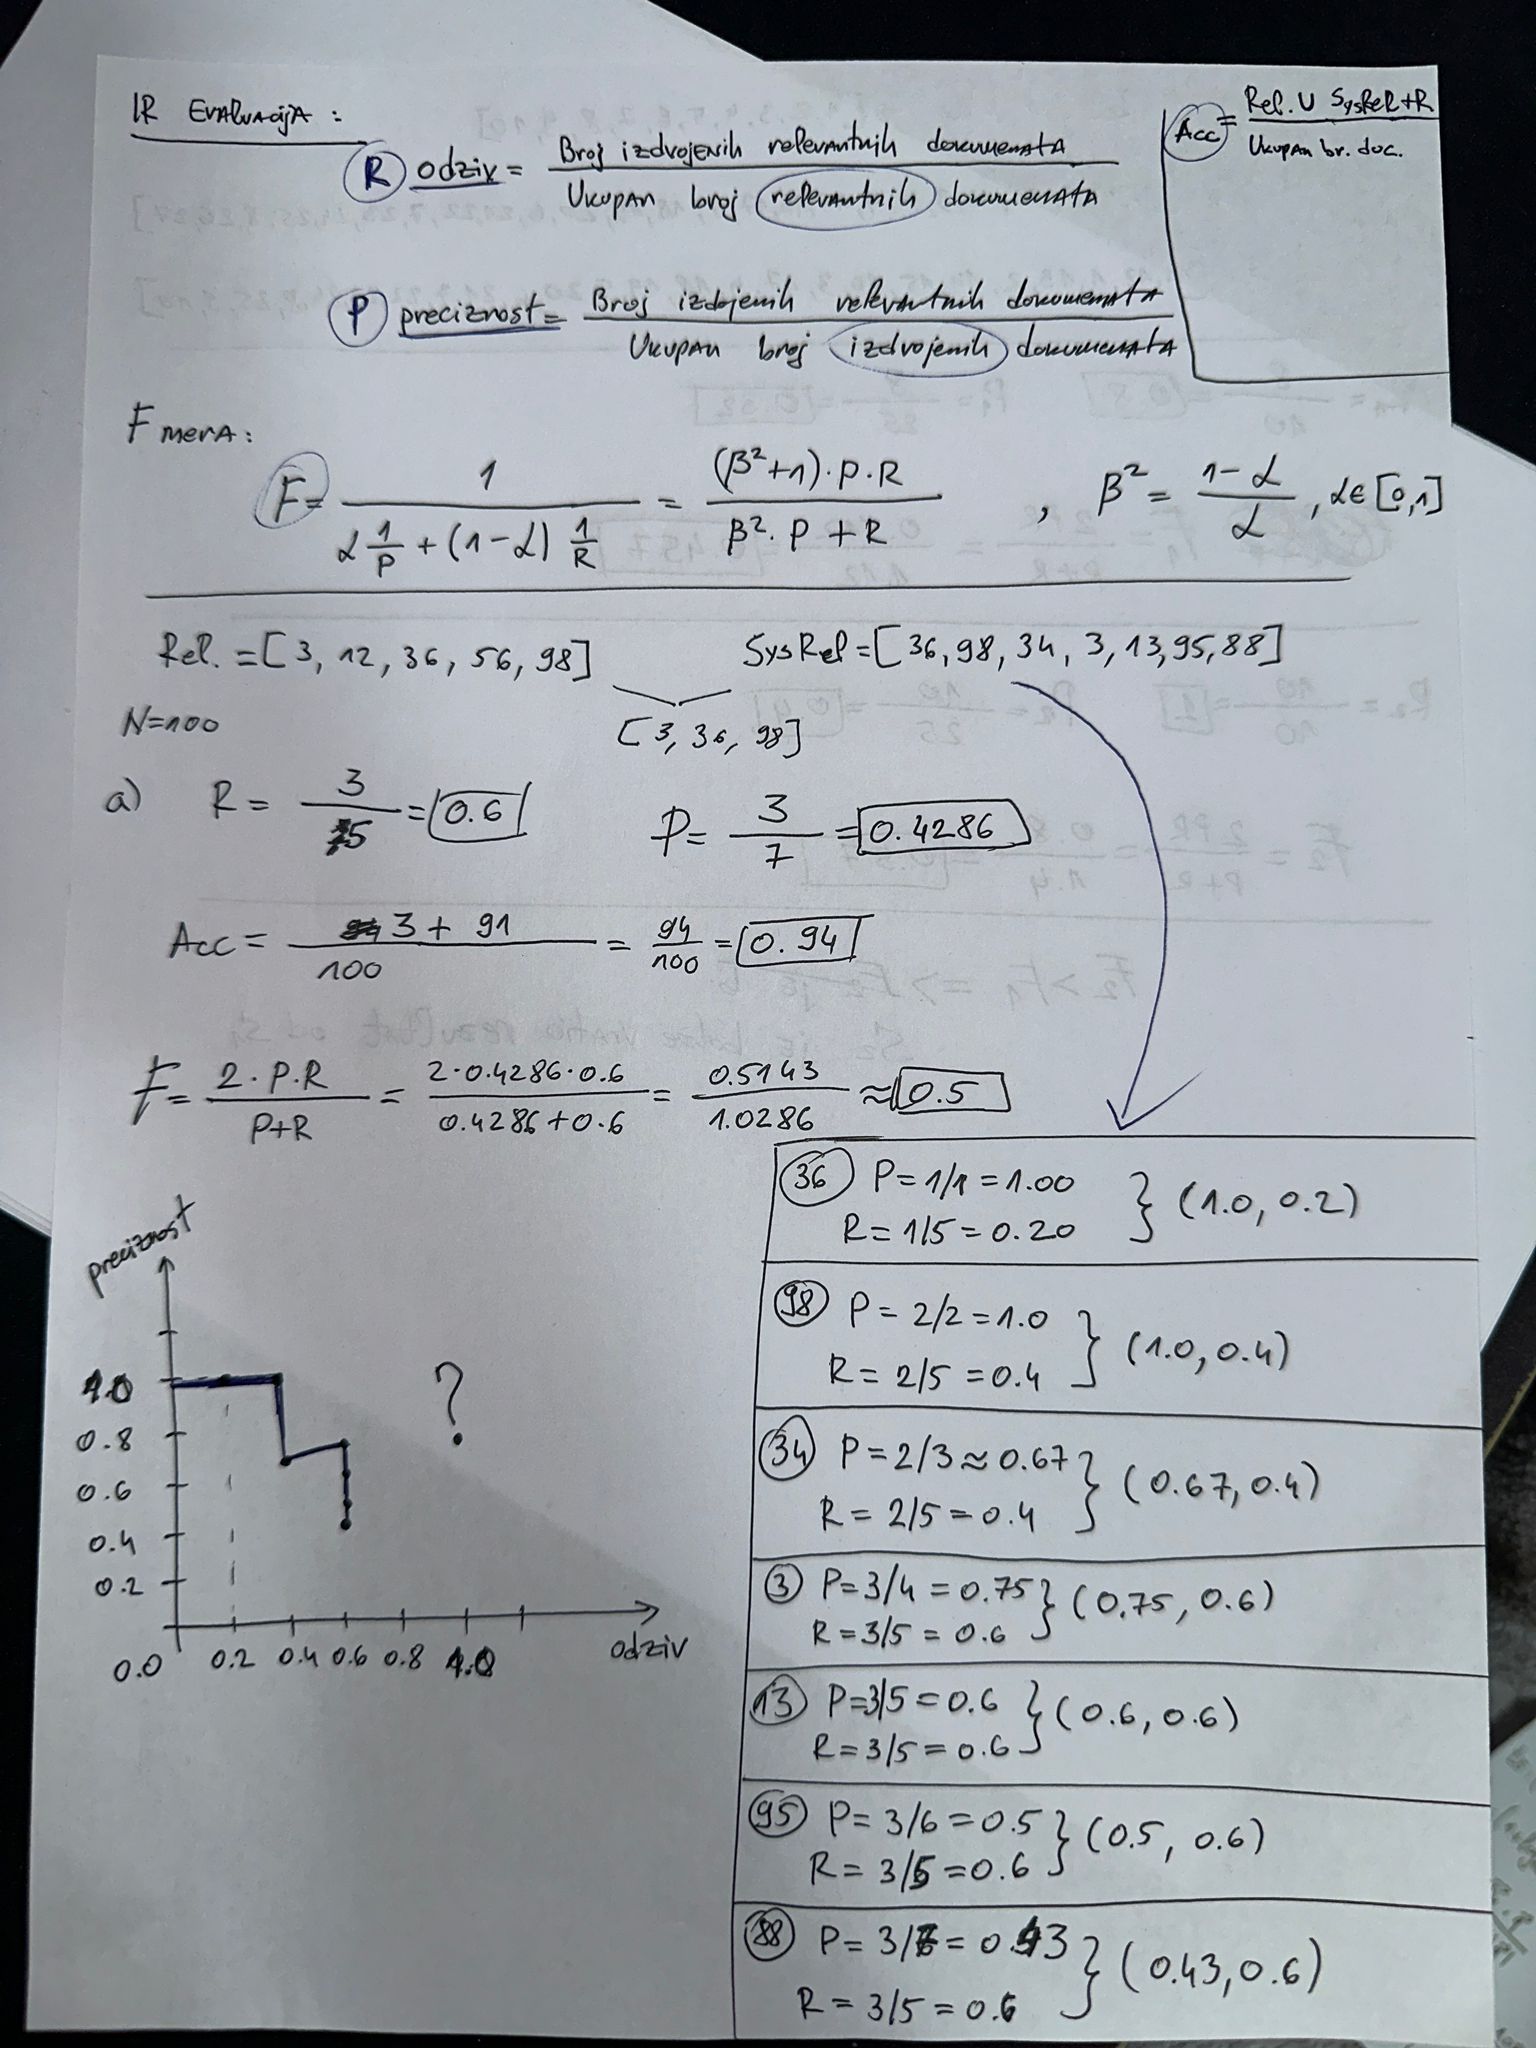 IR Evaluacija:
R odziv = Broj izdvojenih relevantnih dokumenata / Ukupan broj relevantnih dokumenata
Acc = Rel. U SysRel + R / Ukupan br. doc.
P preciznost = Broj izdojenih relevantnih dokumenata / Ukupan broj izdvojenih dokumenata
F mera:
F = 1 / α 1/P + (1-α) 1/R = (β²+1)·P·R / β²·P + R , β² = 1-α / α , α∈[0,1]
Rel. = [3, 12, 36, 56, 98]
SysRel = [36, 98, 34, 3, 13, 95, 88]
N=100
[3, 36, 98]
a) R = 3/5 = 0.6
P = 3/7 = 0.4286
Acc = 3 + 91 / 100 = 94/100 = 0.94
F = 2·P·R / P+R = 2·0.4286·0.6 / 0.4286+0.6 = 0.5143 / 1.0286 ≈ 0.5
36 P = 1/1 = 1.00
R = 1/5 = 0.20 } (1.0, 0.2)
98 P = 2/2 = 1.0
R = 2/5 = 0.4 } (1.0, 0.4)
34 P = 2/3 ≈ 0.67
R = 2/5 = 0.4 } (0.67, 0.4)
3 P = 3/4 = 0.75
R = 3/5 = 0.6 } (0.75, 0.6)
13 P = 3/5 = 0.6
R = 3/5 = 0.6 } (0.6, 0.6)
95 P = 3/6 = 0.5
R = 3/5 = 0.6 } (0.5, 0.6)
88 P = 3/7 = 0.43
R = 3/5 = 0.6 } (0.43, 0.6)
preciznost
1.0
0.8
0.6
0.4
0.2
?
0.0 0.2 0.4 0.6 0.8 1.0
odziv